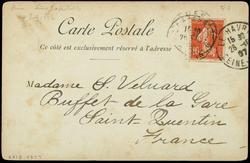 Carte Postale
Ce côté est exclusivement réservé à l'adresse
HAVRE
Madame S. Veluard
Buffet de la Gare
Saint Quentin
France